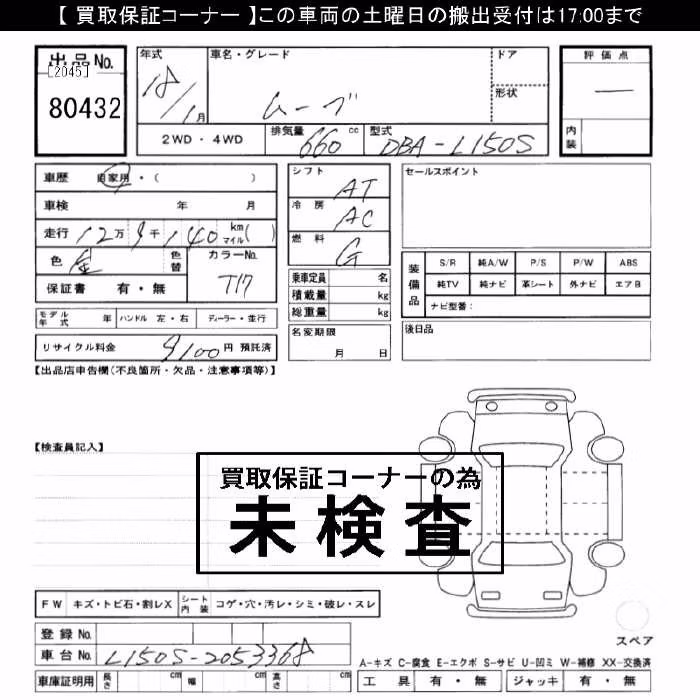 【 買取保証コーナー 】この車両の土曜日の搬出受付は17:00まで
出品No.
[2045]
80432
年式
18/1月
車名・グレード
ムーブ
ドア
形状
評価点
―
内装
2WD・4WD
排気量 660 cc
型式 DBA-L150S
車歴 自家用・( )
車検 年 月
走行 12万9千140 km マイル( )
色 金 色替
カラーNo. T17
保証書 有・無
モデル年式 年 ハンドル 左・右 ディーラー・並行
リサイクル料金 9100円 預託済
シフト AT
冷房 AC
燃料 G
乗車定員 名
積載量 kg
総重量 kg
名変期限
月 日
セールスポイント
装備品
S/R 純A/W P/S P/W ABS
純TV 純ナビ 革シート 外ナビ エアB
ナビ型番：
後日品
【出品店申告欄(不良箇所・欠品・注意事項等)】
【検査員記入】
買取保証コーナーの為
未検査
FW キズ・トビ石・割レX シート内装 コゲ・穴・汚レ・シミ・破レ・スレ
登録No.
車台No. L150S-2053368
車庫証明用 長さ cm 幅 cm 高さ cm
スペア
A-キズ C-腐食 E-エクボ S-サビ U-凹ミ W-補修 XX-交換済
工具 有・無 ジャッキ 有・無